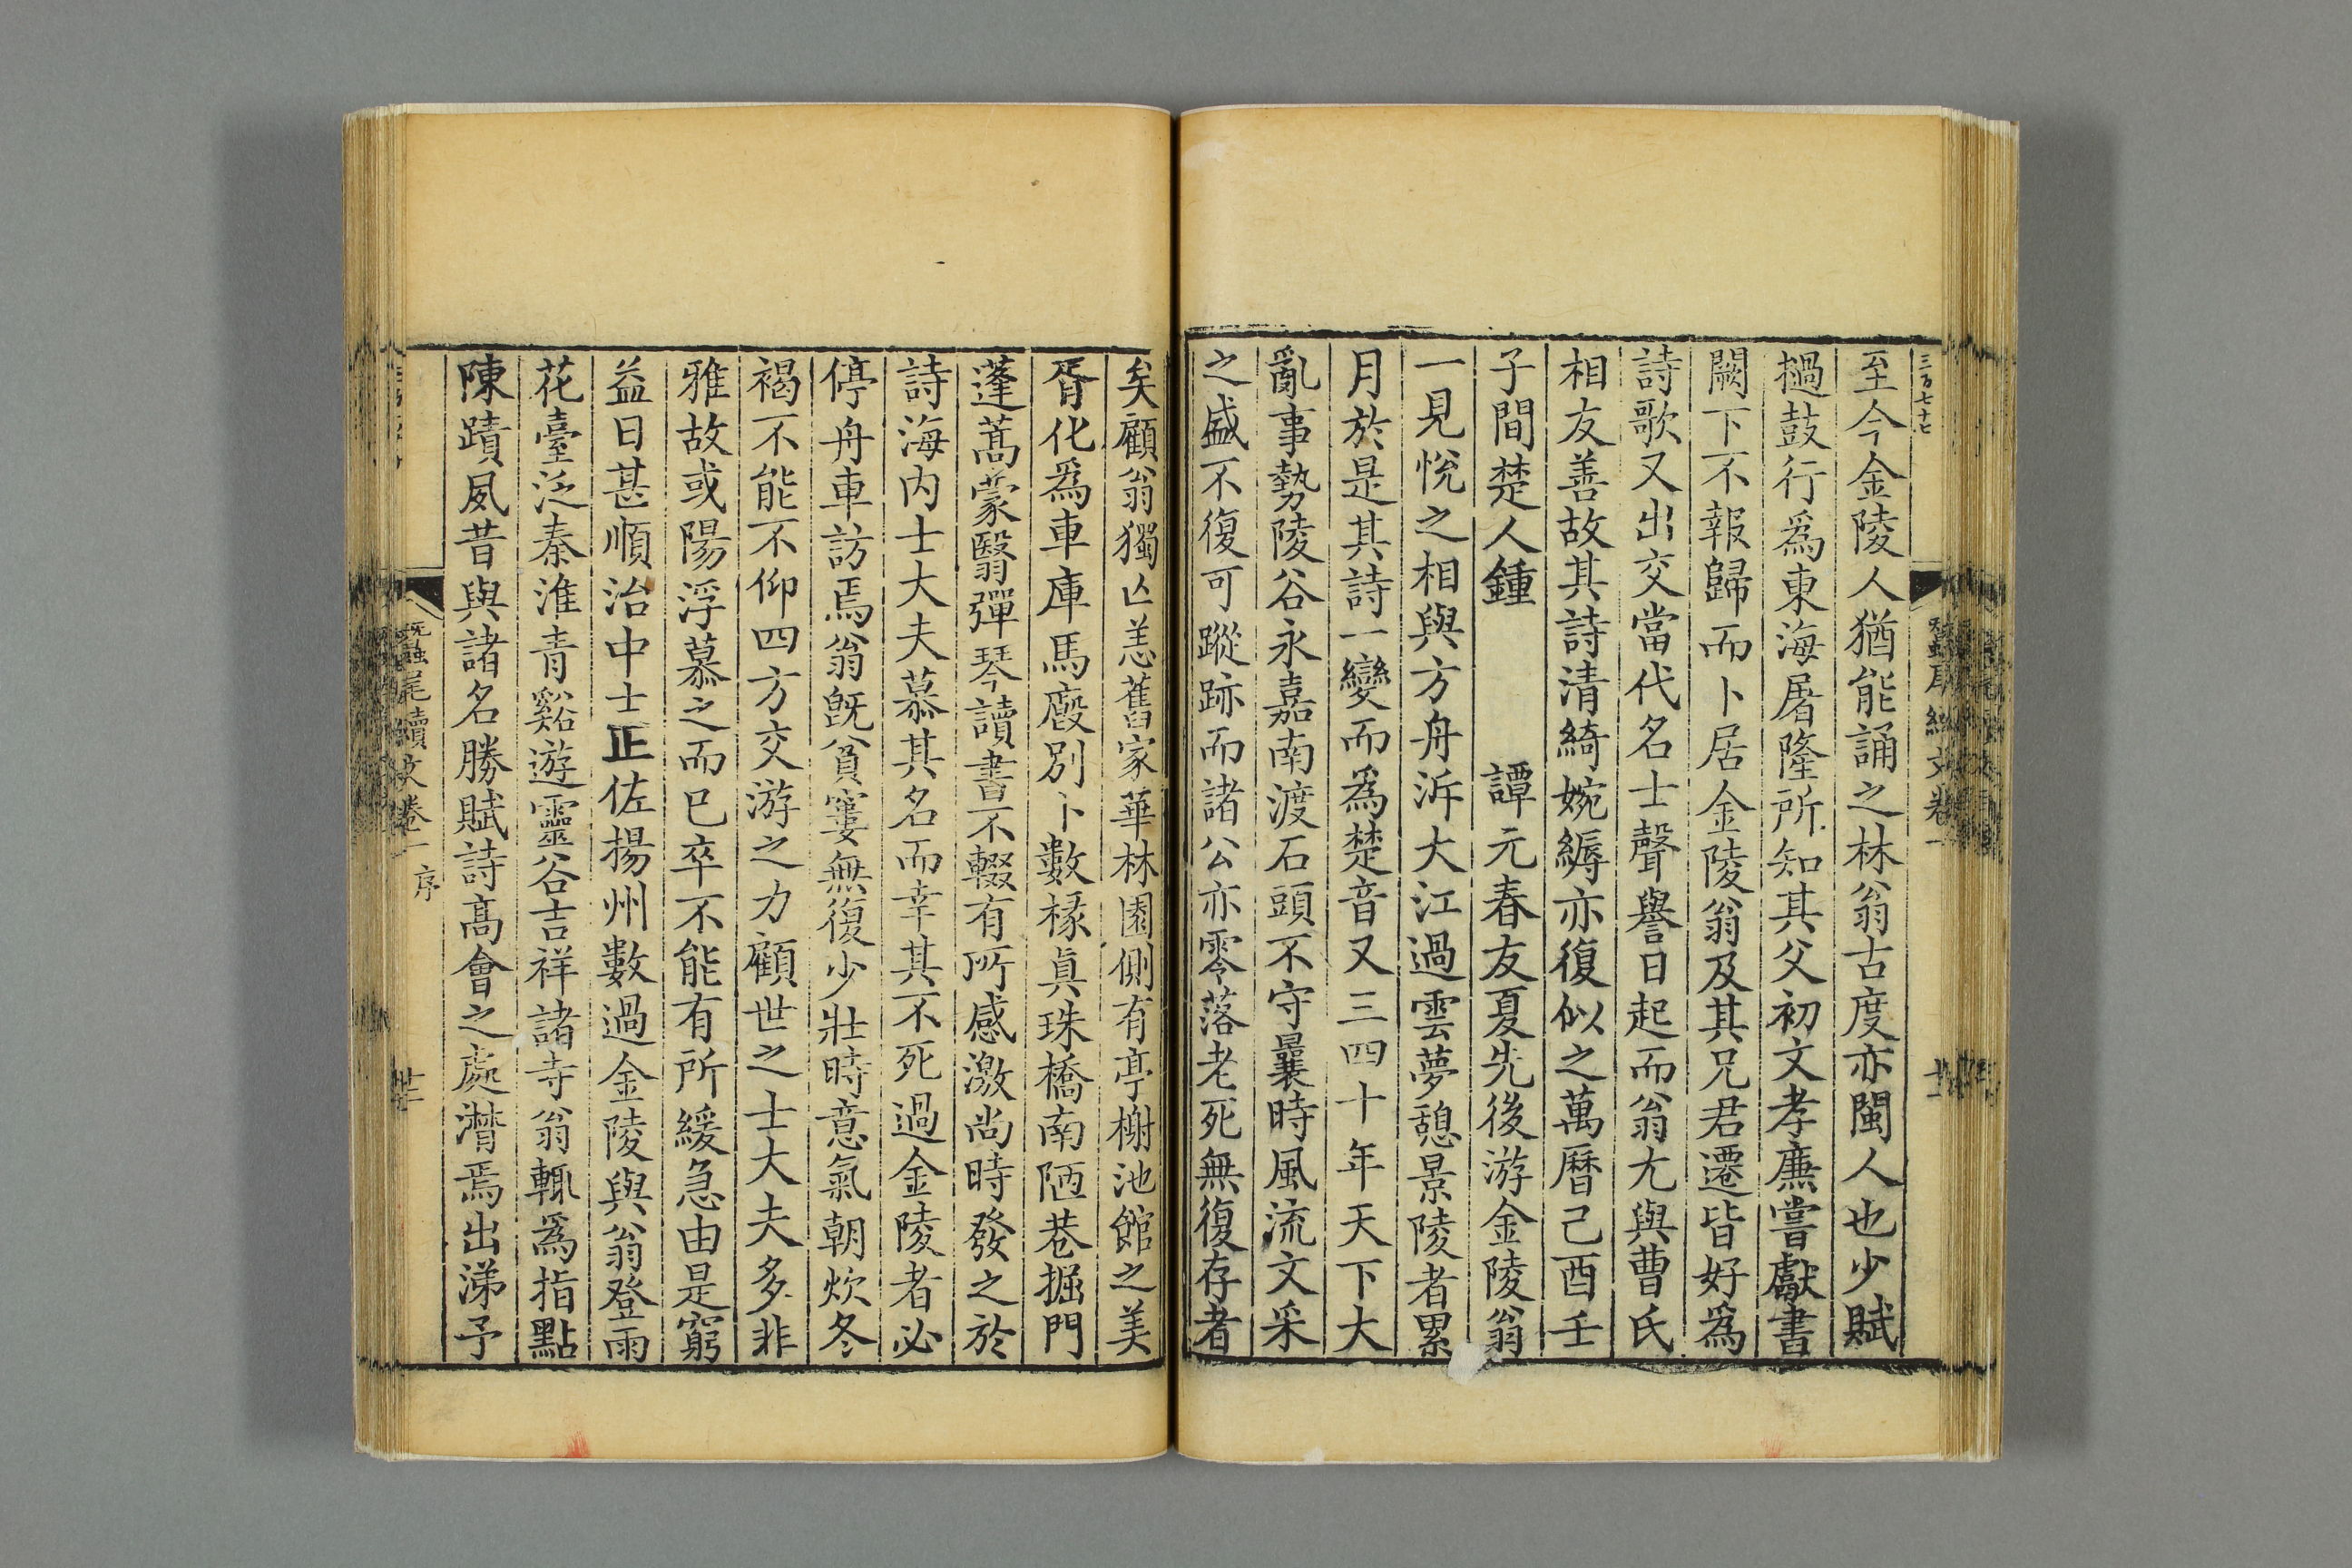 三百七十七
至今金陵人猶能誦之林翁古度亦閩人也少賦
撾鼓行爲東海屠隆所知其父初文孝廉嘗獻書
闕下不報歸而卜居金陵翁及其兄君遷皆好爲
詩歌又出交當代名士聲譽日起而翁尢與曹氏
相友善故其詩清綺婉縟亦復似之萬曆己酉壬
子間楚人鍾 譚元春友夏先後游金陵翁
一見悅之相與方舟泝大江過雲夢憩景陵者累
月於是其詩一變而爲楚音又三四十年天下大
亂事勢陵谷永嘉南渡石頭不守曩時風流文采
之盛不復可蹤跡而諸公亦零落老死無復存者
矣顧翁獨亾恙舊家華林園側有亭榭池館之美
胥化爲車庫馬廄別卜數椽眞珠橋南陋巷掘門
蓬蒿蒙翳彈琴讀書不輟有所感激尚時發之於
詩海内士大夫慕其名而幸其不死過金陵者必
停舟車訪焉翁旣貧窶無復少壯時意氣朝炊冬
褐不能不仰四方交游之力顧世之士大夫多非
雅故或陽浮慕之而已卒不能有所緩急由是窮
益日甚順治中士正佐揚州數過金陵與翁登雨
花臺泛秦淮青谿遊靈谷吉祥諸寺翁輒爲指點
陳蹟夙昔與諸名勝賦詩高會之處潸焉出涕予
蠶尾續文卷一 序